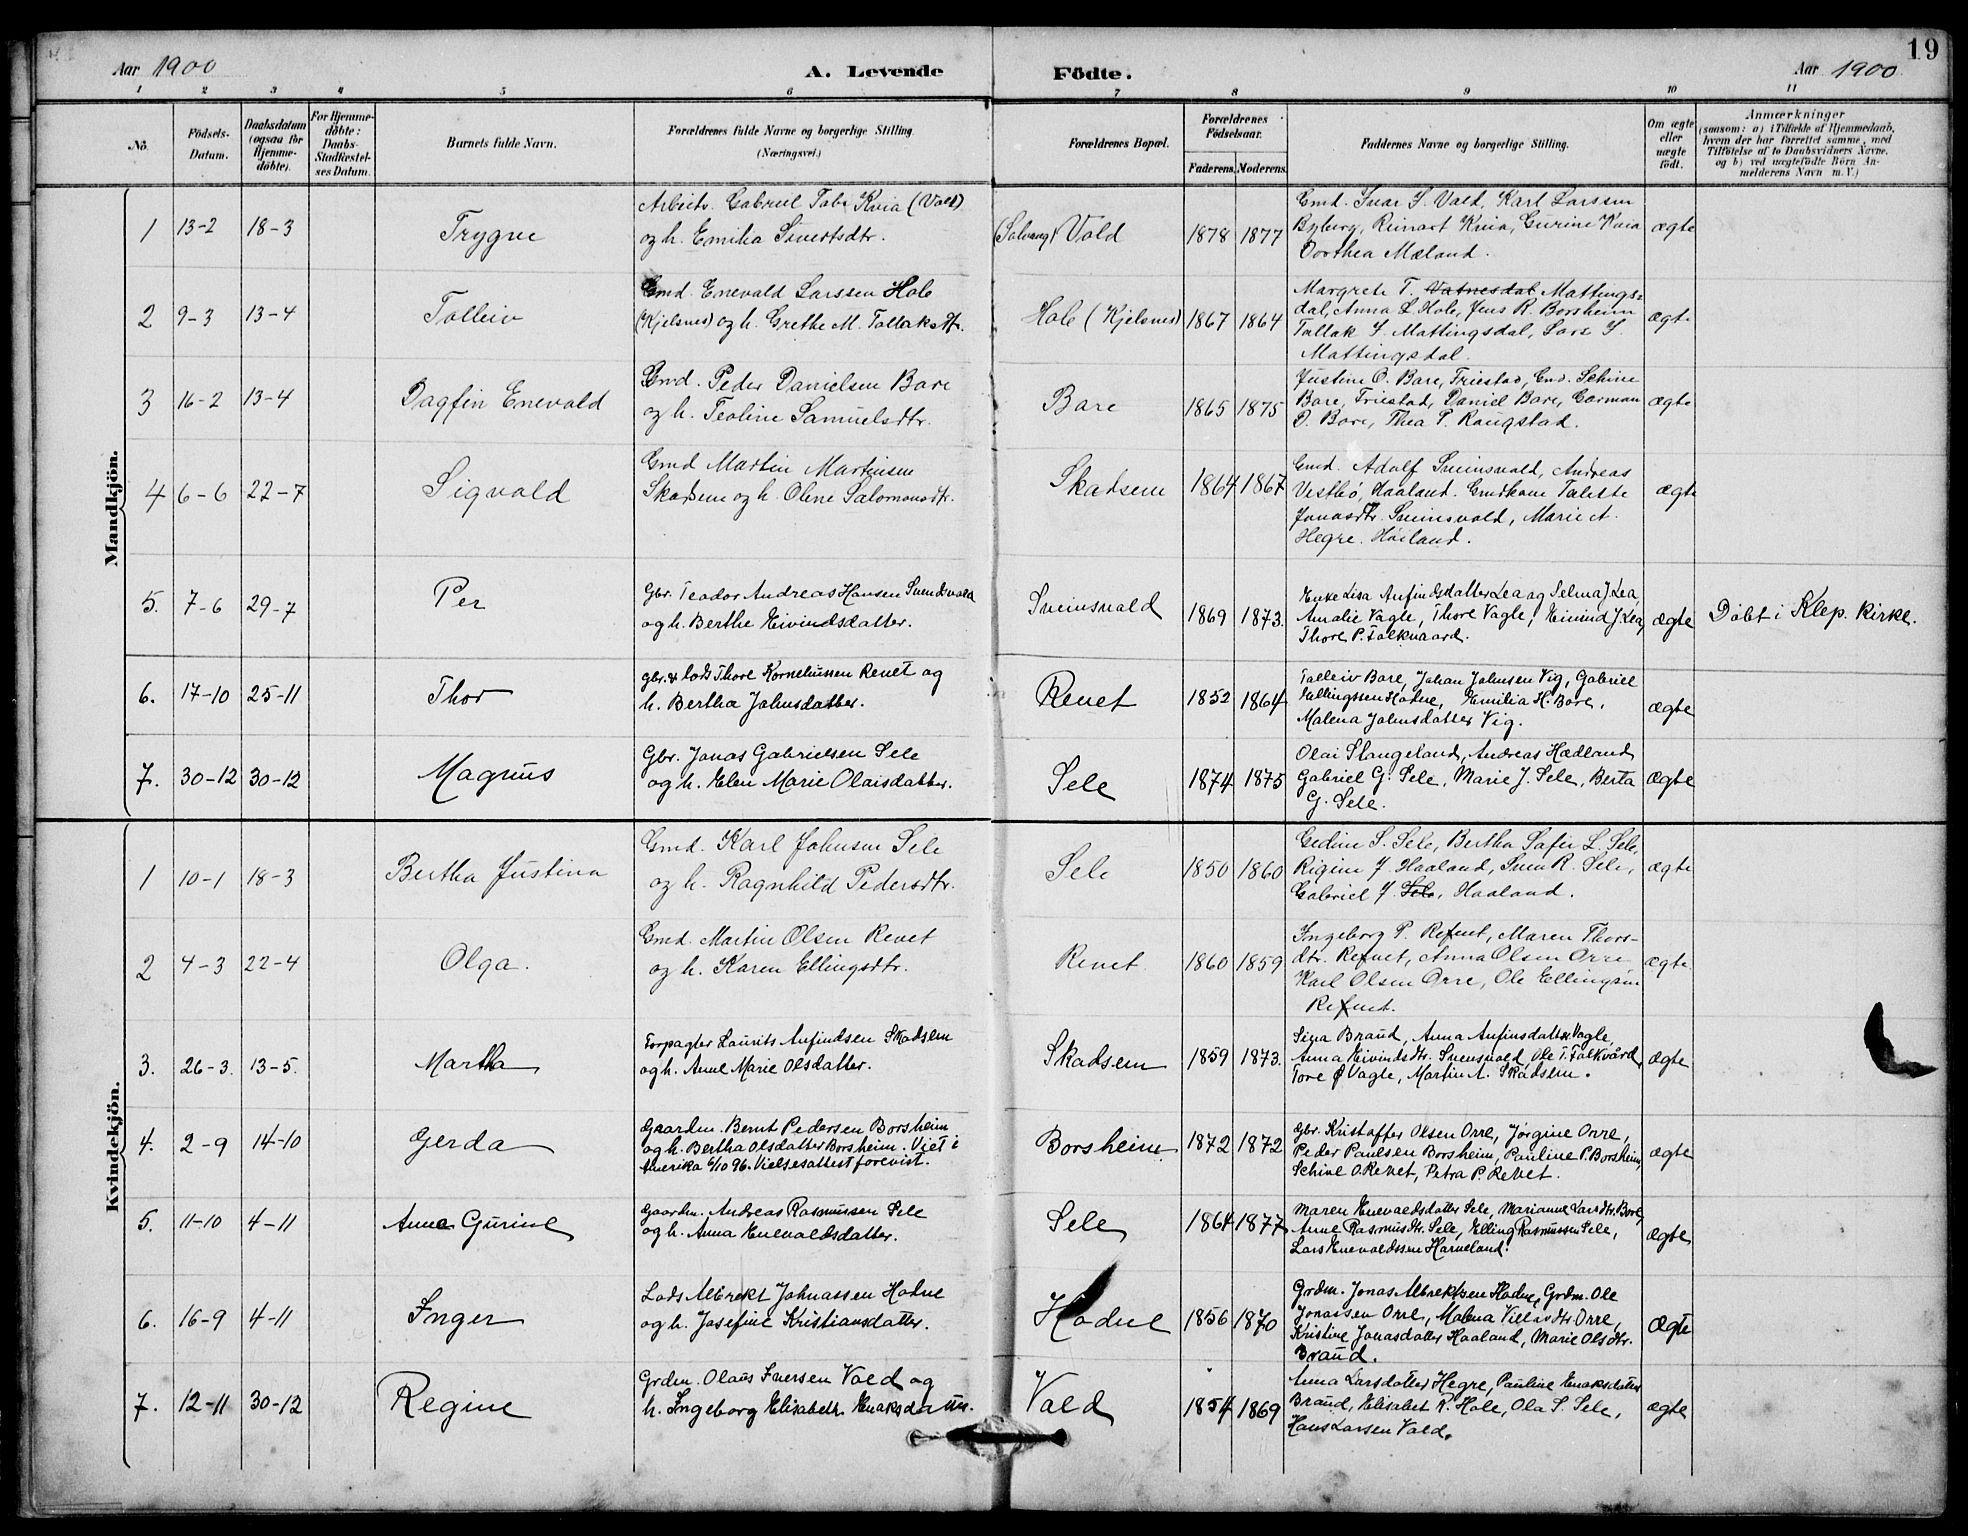 19
Aar 1900 A. Levende Födte. Aar 1900
1 2 3 4 5 6 7 8 9 10 11
No. Födsels-Datum. Daabsdatum (ogsaa for Hjemmedöbte). For Hjemmedöbte: Daabs-Stadfæstelses Datum. Barnets fulde Navn. Forældrenes fulde Navne og borgerlige Stilling. (Næringsvei.) Forældrenes Bopæl. Forældrenes Födselsaar. Faderens. Moderens. Faddernes Navne og borgerlige Stilling. Om ægte eller uægte födt. Anmærkninger (saasom: a) i Tilfælde af Hjemmedaab, hvem der har forrettet samme, med Tilföielse af to Daabsvidners Navne, og b) ved uægtefödte Börn Anmelderens Navn m. V.)
Mandkjön.
1 13-2 18-3 Trygve
Arbeidr. Gabriel Tobr Kvia (Vold)
og h. Emilia Sivertsdtr.
(Solvang) Vold 1878 1877
Gmd. Ivar S. Vald, Karl Larssen
Byberg, Reinart Kvia, Gurine Kvia
Dorthea Mæland.
ægte
2 9-3 13-4 Tolleiv
Gmd. Enevald Larssen Hole
(Kjelsnes) og h. Grethe M. Tollaksdtr.
Hole (Kjelsnes) 1867 1864
Margrete T. Vatnesdal Mattings-
dal, Anna L Hole, Jens R. Borsheim
Tallak S. Mattingsdal, Lars S.
Mattingsdal.
ægte
3 16-2 13-4 Dagfin Enevald
Gmd. Peder Danielsen Bore
og h. Teoline Samuelsdtr.
Bore 1865 1875
Justine O. Bore, Friestad, Gmd. Schine
Bore, Friestad, Daniel Bore, Gorman
D. Bore, Thea P. Raugstad.
ægte
4 6-6 22-7 Sigvald
Gmd Martin Martinsen
Skadsem og h. Oline Salomonsdtr.
Skadsem 1864 1867
Gmd. Adolf Sveinsvold, Andreas
Vestbö, Haaland. Gmdkone Talette
Jonasdtr. Sveinsvold, Marie A.
Hegre. Höiland.
ægte
5. 7-6 29-7 Per
Gbr. Teodor Andreas Hansen Svendsvold
og h. Berthe Eivindsdatter.
Sveinsvald 1869 1873.
Enke Lisa Anfindsdatter Lea og Selma J. Lea
Amalie Vagle, Thore Vagle, Eivind J. Lea,
Thore P. Folkvaard.
ægte Döbt i Klep. Kirke.
6. 17-10 25-11 Thor
gbr. & lods Thore Korneliussen Revet og
h. Bertha Johnsdatter.
Revet 1852 1864
Tolleiv Bore, Johan Johnsen Vig, Gabriel
Ellingssen Hodne, Emilia H. Bore,
Malena Johnsdatter Vig.
ægte
7. 30-12 30-12 Magnus
Gbr. Jonas Gabrielsen Sele
og h. Elen Marie Olaisdatter.
Sele 1874 1875
Olai Stangeland, Andreas Hædland
Gabriel G. Sele, Marie J. Sele, Berta
G. Sele.
ægte
Kvindekjön.
1 10-1 18-3 Bertha Justina
Gmd. Karl Johnsen Sele
og h. Ragnhild Pedersdtr.
Sele 1850 1860
Gedine S. Sele, Bertha Sofie L. Sele,
Rigine J Haaland, Sven R. Sele,
Gabriel J. Sele, Haaland.
ægte
2 4-3 22-4 Olga.
Gmd. Martin Olsen Revet
og h. Karen Ellingsdtr.
Revet 1860 1859
Ingeborg P. Refvet, Maren Thors-
dtr. Refvet, Anna Olsen Orre
Karl Olsen Orre, Ole Ellingsen
Refvet.
ægte
3. 26-3. 13-5. Martha
Forpagter Laurits Anfindsen Skadsem
og h. Anne Marie Olsdatter.
Skadsem 1859 1873.
Sina Braud, Anna Anfinsdatter Vagle,
Anna Eivindsdtr. Svensvold, Ole T. Folkvård
Tore Ø Vagle, Martin A. Skadsem.
ægte
4. 2-9 14-10 Gerda
Gaardm. Bernt Pedersen Borsheim
og h. Bertha Olsdatter Borsheim. Viet i
Amerika 6/10 96. Vielsesattest forevist.
Borsheim 1872 1872
Gbr. Kristoffer Olsen Orre, Jørgine Orre,
Peder Paulsen Borsheim, Pauline P. Borsheim,
Schine O. Revet, Petra P. Revet.
ægte
5. 11-10 4-11 Anne Gurine
Gaardm. Andreas Rasmussen Sele
og h. Anna Enevaldsdatter.
Sele 1864 1877
Maren Enevaldsdatter Sele, Marianne Larsdtr. Bore,
Anne Rasmusdtr. Sele, Elling Rasmussen Sele,
Lars Enevaldssen Harveland.
ægte
6. 16-9 4-11 Inger
Lods Albrekt Johnassen Hodne
og h. Josefine Kristiansdatter.
Hodne 1856 1870
Grdm. Jonas Albrektsen Hodne, Grdm. Ole
Jonassen Orre, Malena Villasdtr. Orre,
Kristine Jonasdatter Haaland, Marie Olsdtr.
Braud.
ægte
7. 12-11 30-12 Regine
Grdm. Olaus Iversen Vold og
h. Ingeborg Elisabeth Enoksdatter.
Vold 1854 1869
Anna Larsdatter Hegre, Pauline Enoksdatter
Braud, Elisabet R. Hole, Ola S. Sele,
Hans Larsen Vold.
ægte